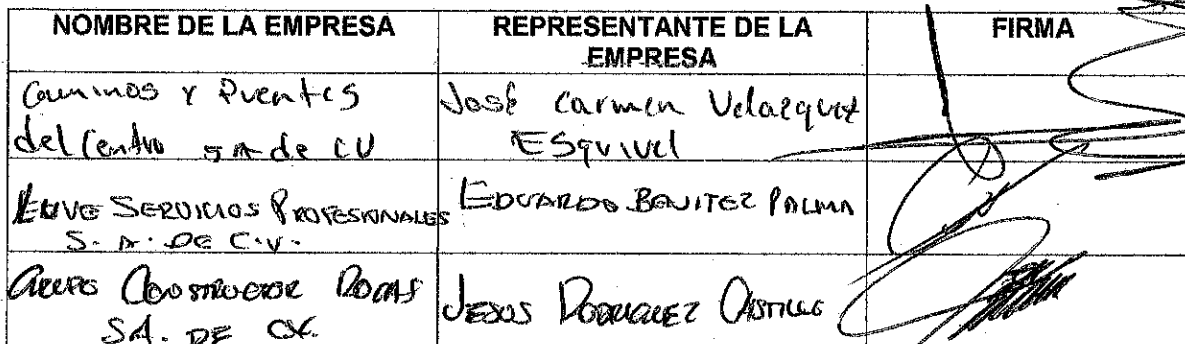 NOMBRE DE LA EMPRESA
REPRESENTANTE DE LA EMPRESA
FIRMA
Caminos y Puentes
del Centro SA de CV
José Carmen Velazquez
Esquivel
SERVICIOS PROFESIONALES
S.A. DE C.V.
EDUARDO BENITEZ PALMA
GRUPO CONSTRUCTOR
S.A. DE CV.
JESUS RODRIGUEZ CASTILLO